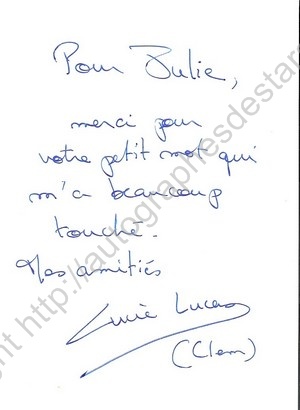 Pour Julie,
merci pour
votre petit mot qui
m'a beaucoup
touché.
Mes amitiés
Lucie Lucas
(Clem)
ht http://autographesdestars